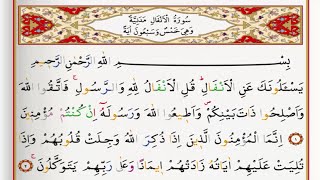 سُورَةُ الْاَنْفَالِ مَدَنِيَّةٌ
وَهِيَ خَمْسٌ وَسَبْعُونَ اٰيَةً
بِسْــــمِ اللّٰهِ الرَّحْمٰنِ الرَّحِيمِ
يَسْـَٔلُونَكَ عَنِ الْاَنْفَالِۜ قُلِ الْاَنْفَالُ لِلّٰهِ وَالرَّسُولِۚ فَاتَّقُوا اللّٰهَ
وَاَصْلِحُوا ذَاتَ بَيْنِكُمْۖ وَاَطِيعُوا اللّٰهَ وَرَسُولَهُٓ اِنْ كُنْتُمْ مُؤْمِنِينَ
﴿١﴾ اِنَّمَا الْمُؤْمِنُونَ الَّذِينَ اِذَا ذُكِرَ اللّٰهُ وَجِلَتْ قُلُوبُهُمْ وَاِذَا
تُلِيَتْ عَلَيْهِمْ اٰيَاتُهُ زَادَتْهُمْ اِيمَانًا وَعَلٰى رَبِّهِمْ يَتَوَكَّلُونَۚ ﴿٢﴾